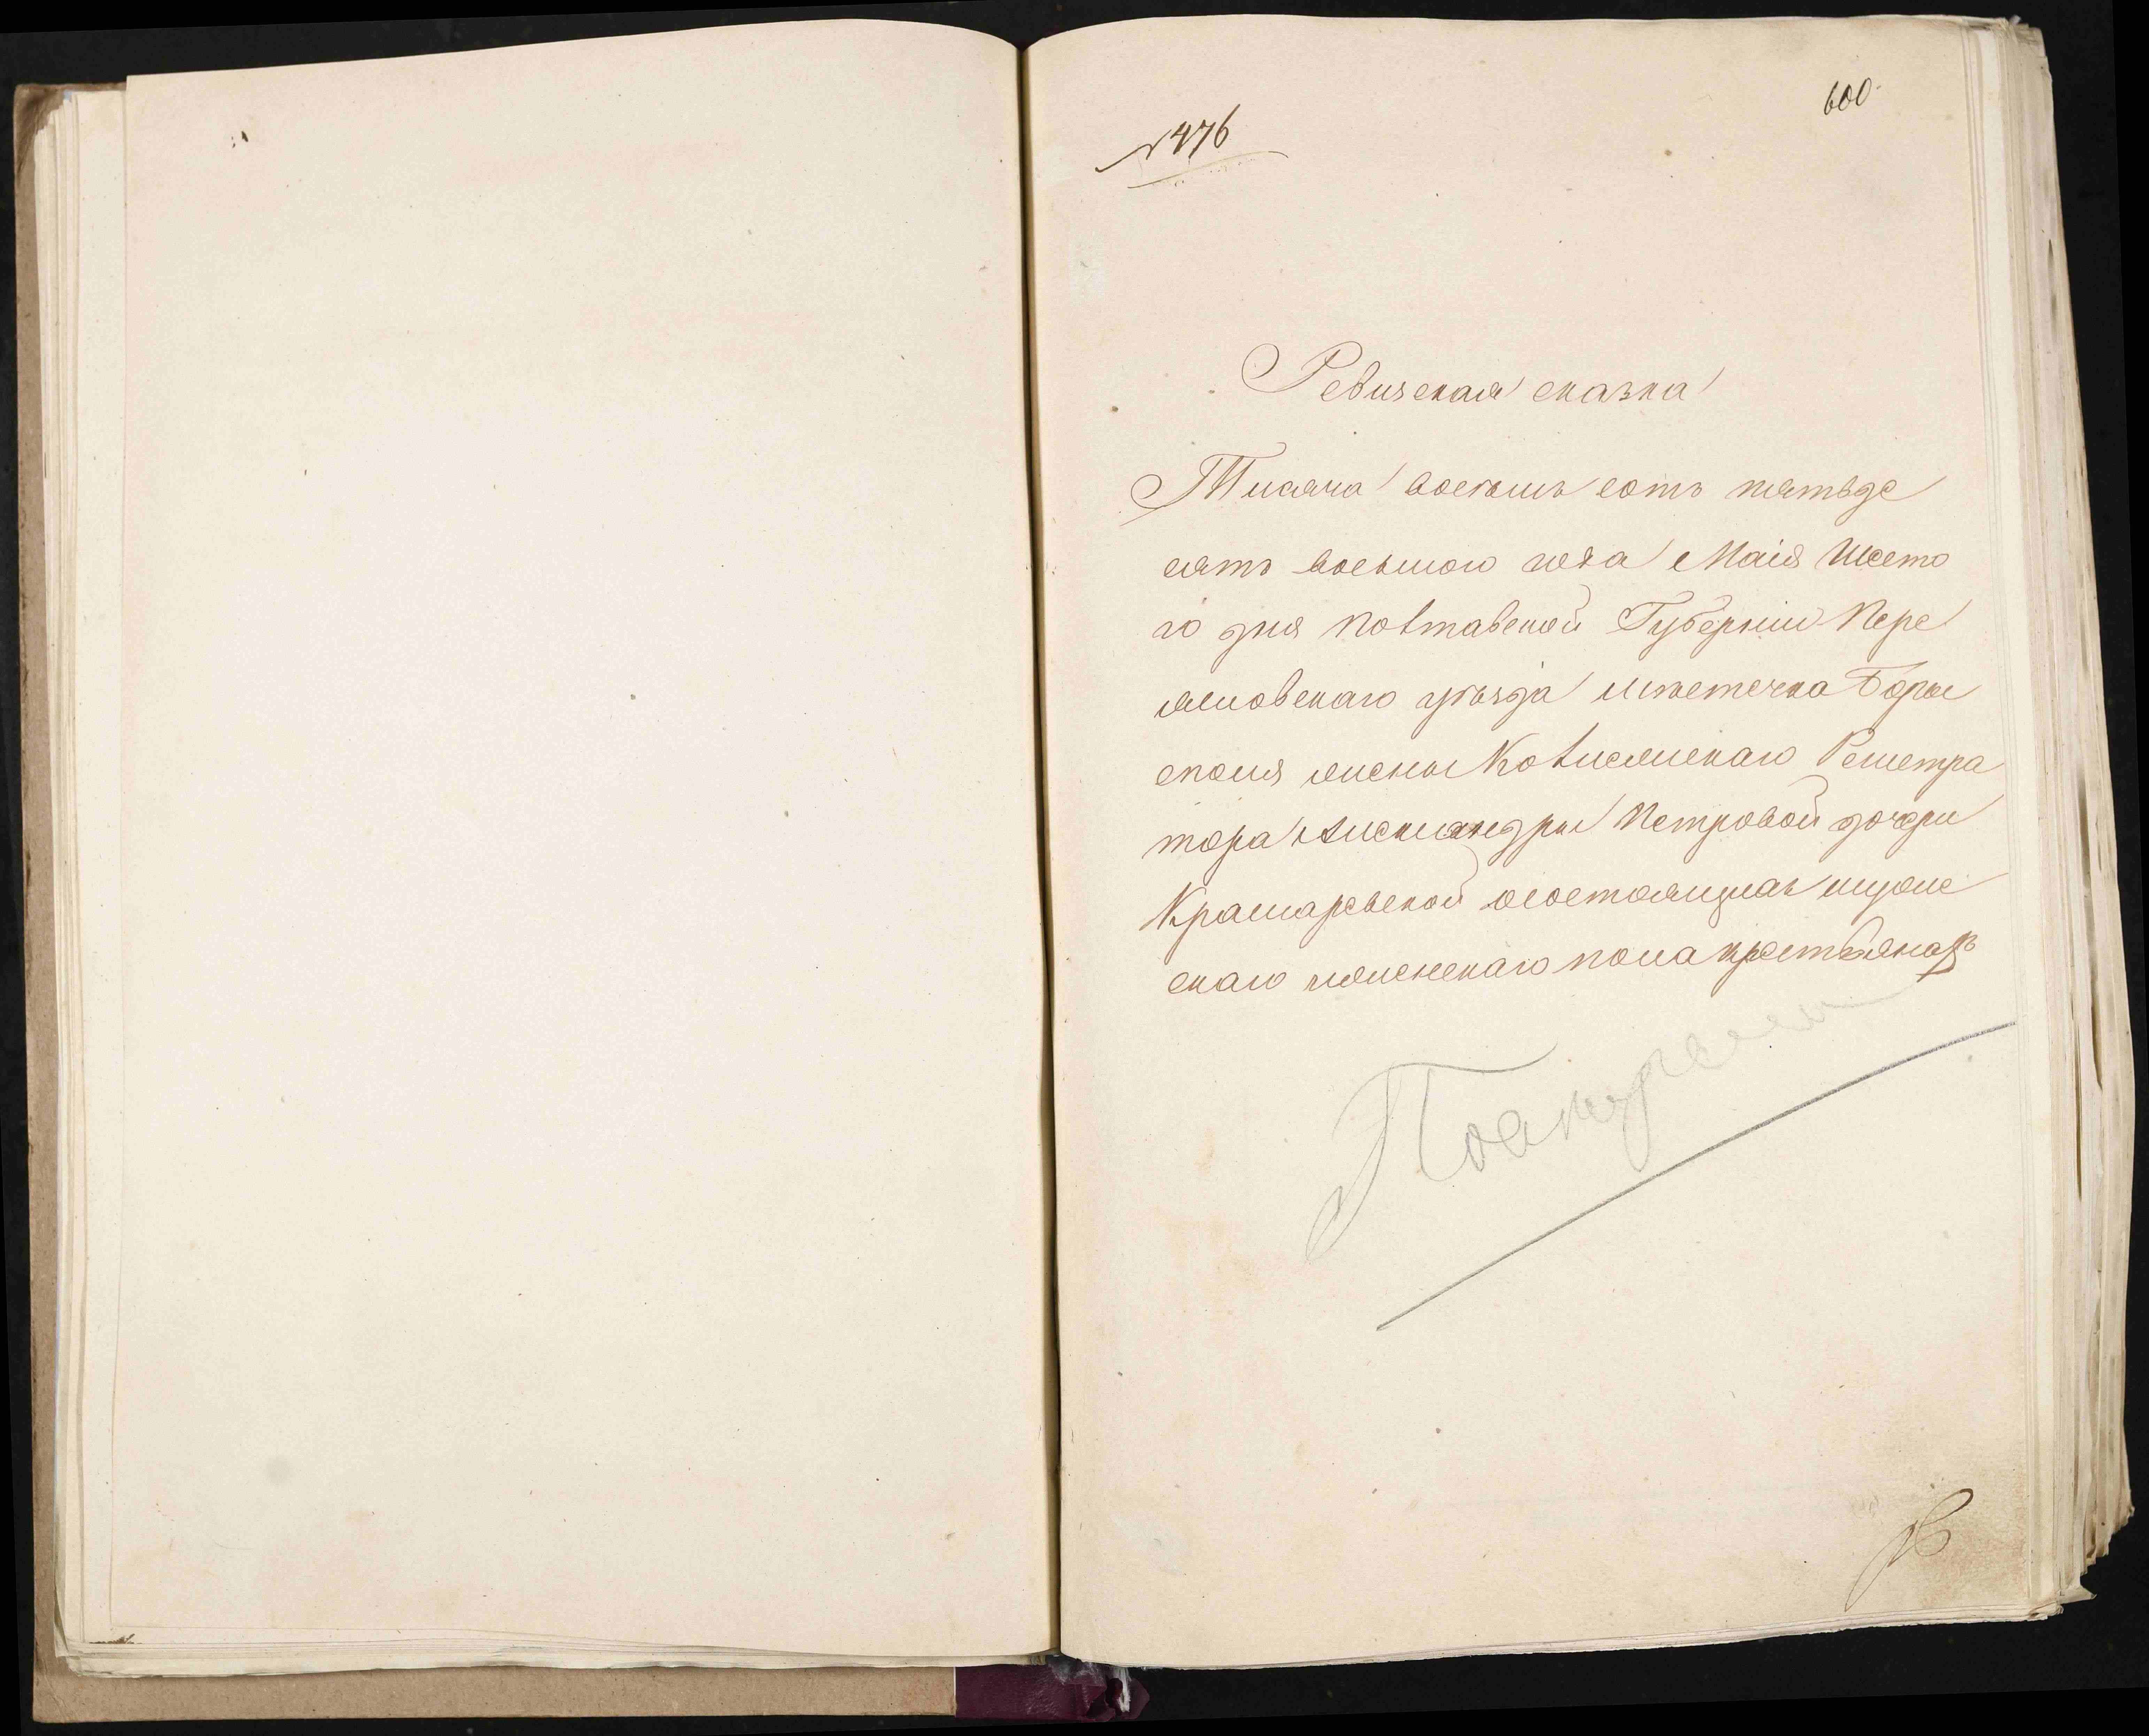 600
№476
Ревизская сказка
Тисяча восемь сотъ пятьде
сятъ восьмого года Маія шесто
го дня Полтавской Губерніи Пере
яславскаго уѣзда мѣстечка Бори
споля жены Колежскаго Регистра
тора Александры Петровой дочери
Крамаревской осостоящихъ мужес
скаго иженскаго пола крестьянахъ